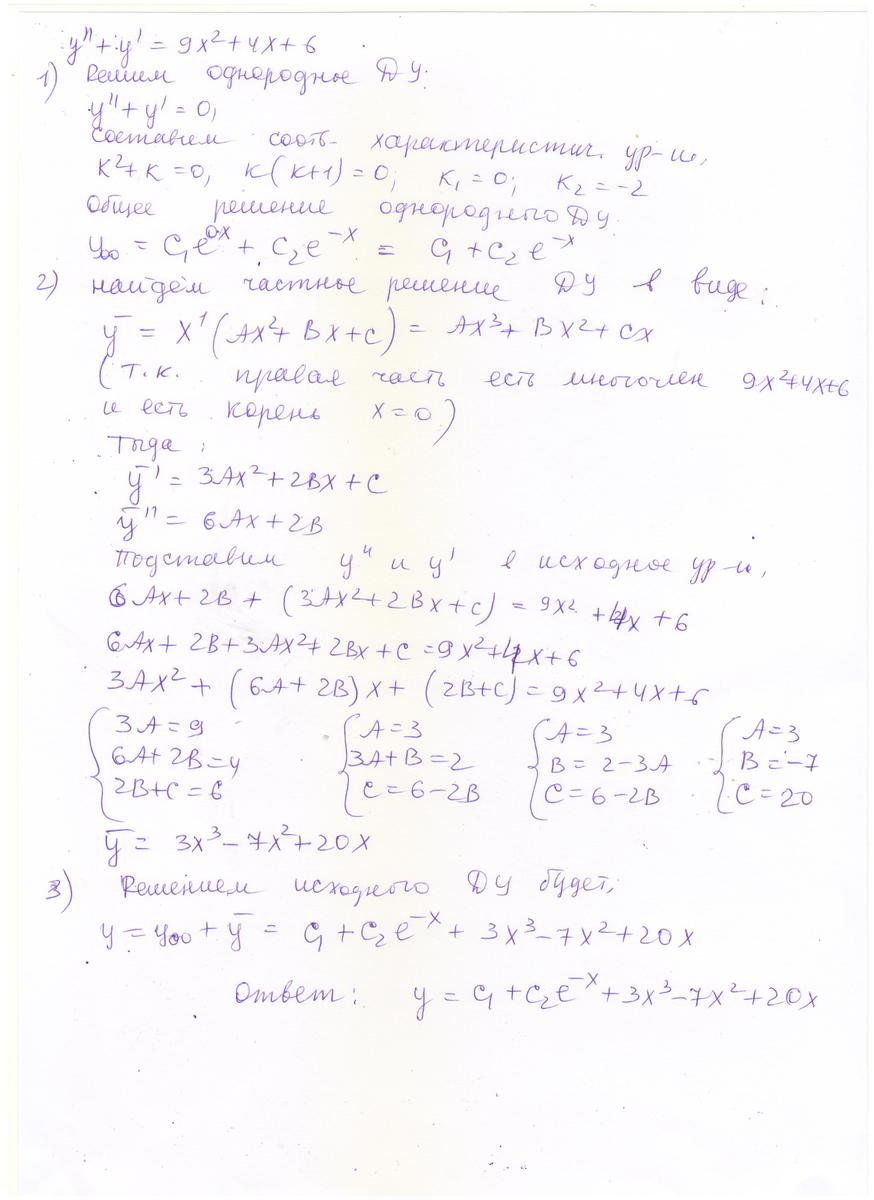 y'' + y' = 9x² + 4x + 6
1) Решим однородное ДУ:
y'' + y' = 0,
Составим соотв. характеристич. ур-ие,
k² + k = 0, k(k+1) = 0; k₁ = 0; k₂ = -2
Общее решение однородного ДУ.
y₀₀ = C₁e⁰ˣ + C₂e⁻ˣ = C₁ + C₂e⁻ˣ
2) найдём частное решение ДУ в виде:
ȳ = x¹(Ax² + Bx + C) = Ax³ + Bx² + Cx
(т.к. правая часть есть многочлен 9x²+4x+6
и есть корень x=0)
Тогда:
ȳ' = 3Ax² + 2Bx + C
ȳ'' = 6Ax + 2B
Подставим y'' и y' в исходное ур-ие,
6Ax + 2B + (3Ax² + 2Bx + C) = 9x² + 4x + 6
6Ax + 2B + 3Ax² + 2Bx + C = 9x² + 4x + 6
3Ax² + (6A + 2B)x + (2B + C) = 9x² + 4x + 6
3A = 9 A = 3 A = 3 A = 3
6A + 2B = 4 3A + B = 2 B = 2 - 3A B = -7
2B + C = 6 C = 6 - 2B C = 6 - 2B C = 20
ȳ = 3x³ - 7x² + 20x
3) Решением исходного ДУ будет,
y = y₀₀ + ȳ = C₁ + C₂e⁻ˣ + 3x³ - 7x² + 20x
Ответ: y = C₁ + C₂e⁻ˣ + 3x³ - 7x² + 20x